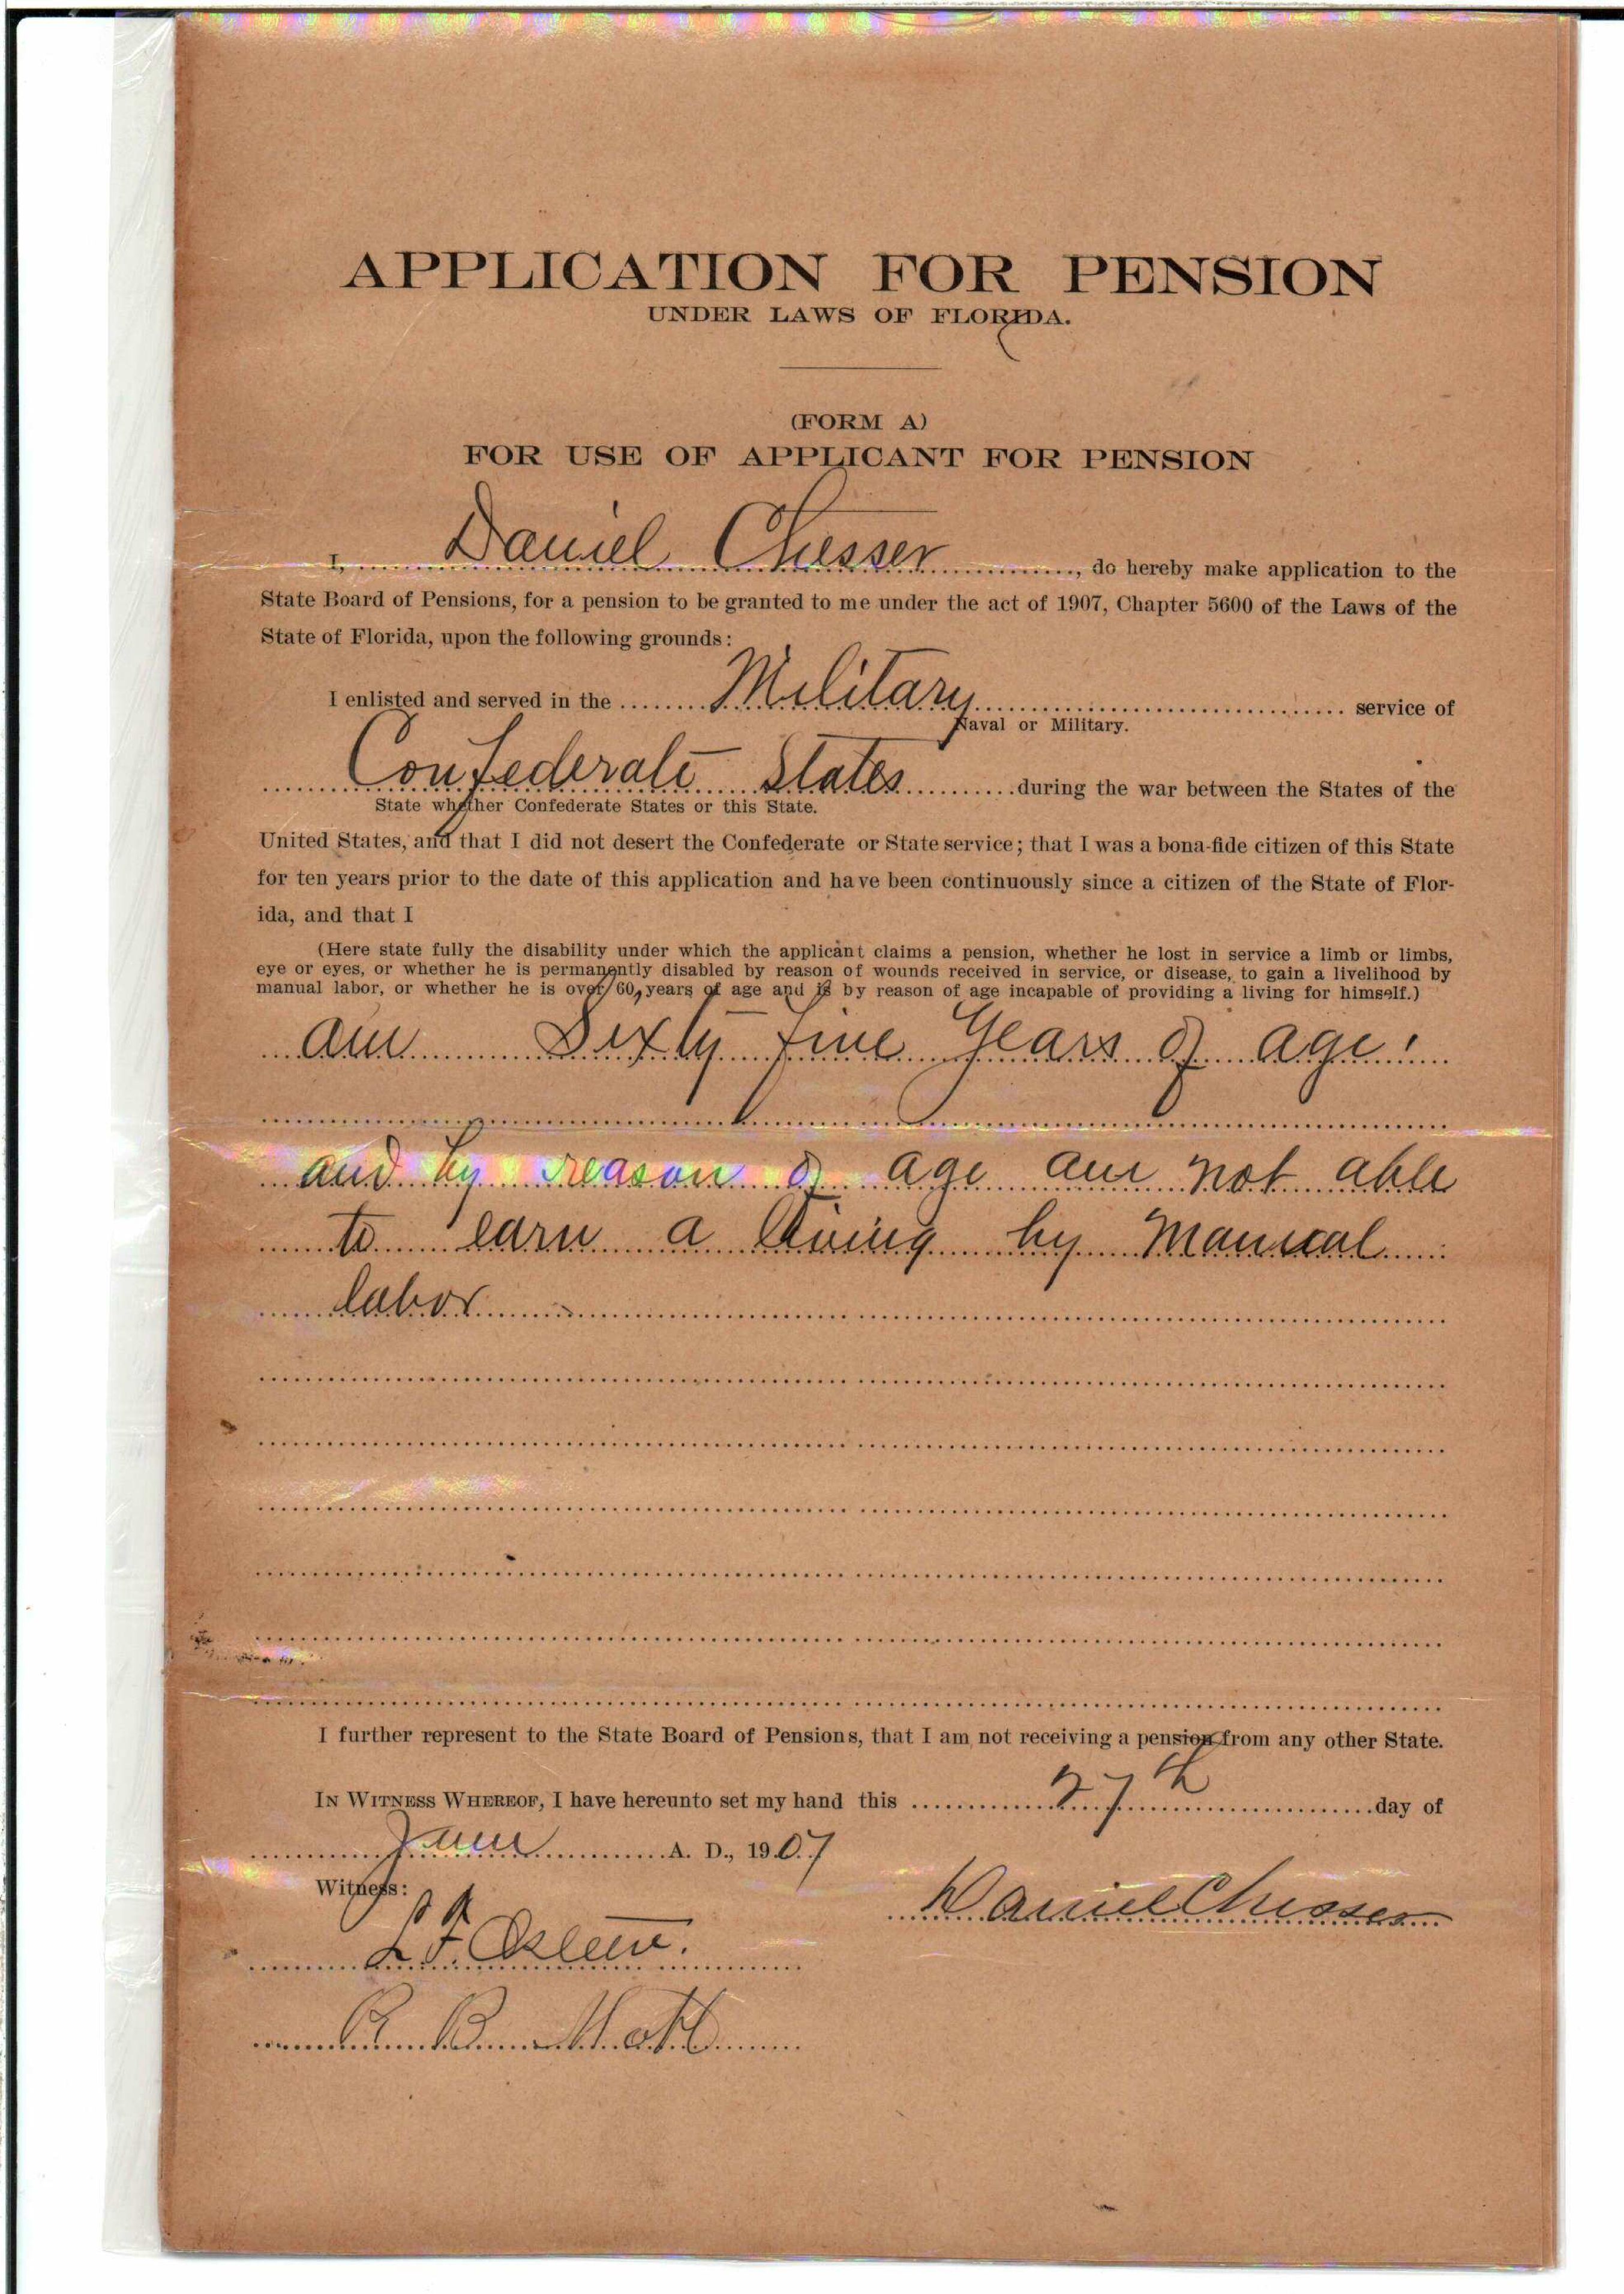 APPLICATION FOR PENSION
UNDER LAWS OF FLORIDA.
(FORM A)
FOR USE OF APPLICANT FOR PENSION
I, Daniel Chesser, do hereby make application to the
State Board of Pensions, for a pension to be granted to me under the act of 1907, Chapter 5600 of the Laws of the
State of Florida, upon the following grounds:
I enlisted and served in the Military service of
Naval or Military.
Confederate States during the war between the States of the
State whether Confederate States or this State.
United States, and that I did not desert the Confederate or State service; that I was a bona-fide citizen of this State
for ten years prior to the date of this application and have been continuously since a citizen of the State of Flor-
ida, and that I
(Here state fully the disability under which the applicant claims a pension, whether he lost in service a limb or limbs,
eye or eyes, or whether he is permanently disabled by reason of wounds received in service, or disease, to gain a livelihood by
manual labor, or whether he is over 60 years of age and is by reason of age incapable of providing a living for himself.)
am Sixty five years of age
and by reason of age am not able
to earn a living by manual
labor
I further represent to the State Board of Pensions, that I am not receiving a pension from any other State.
IN WITNESS WHEREOF, I have hereunto set my hand this 27th day of
June A. D., 1907
Witness:
Daniel Chesser
R. B.